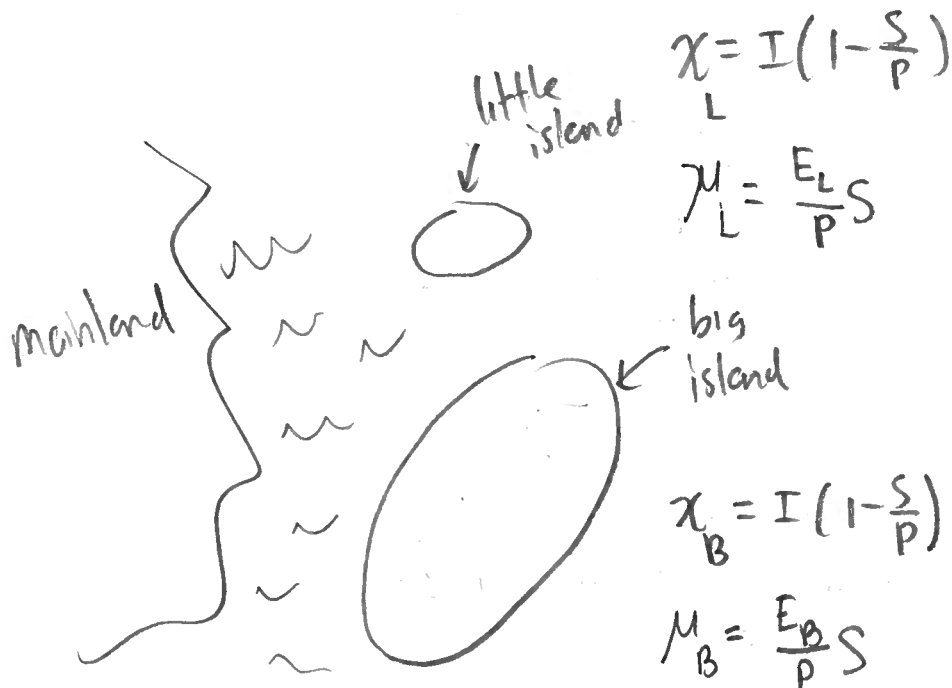 little
island
χ_L = I(1 - S/P)
μ_L = E_L/P S
mainland
big
island
χ_B = I(1 - S/P)
μ_B = E_B/P S